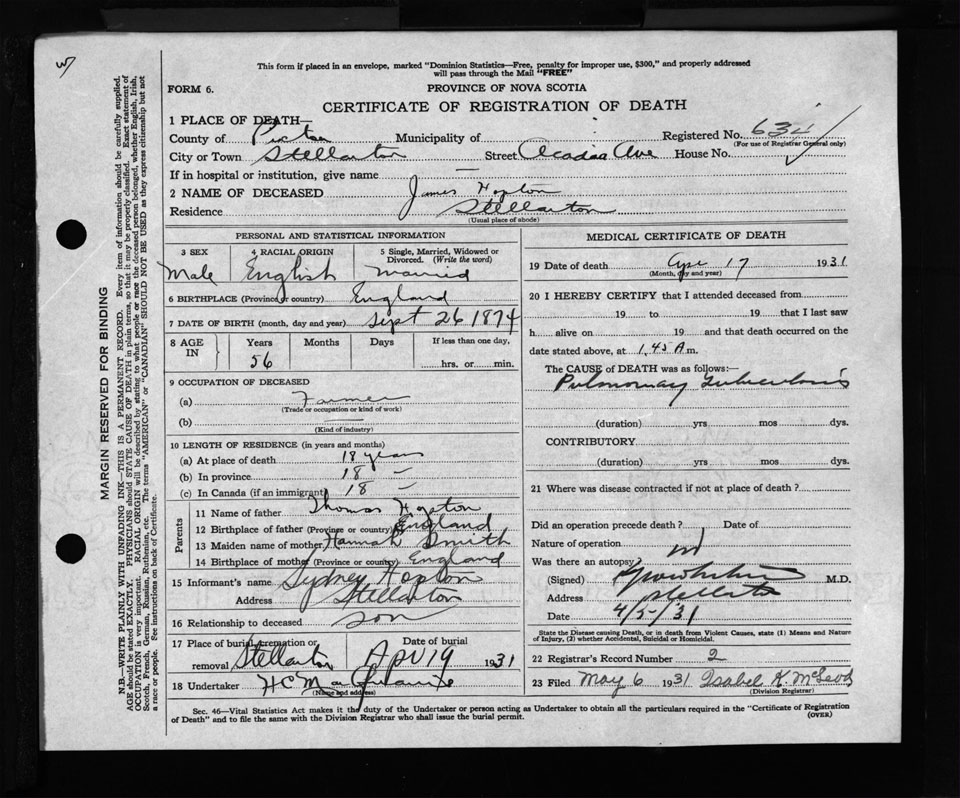 W
This form if placed in an envelope, marked "Dominion Statistics—Free, penalty for improper use, $300," and properly addressed
will pass through the Mail "FREE"
FORM 6.
PROVINCE OF NOVA SCOTIA
CERTIFICATE OF REGISTRATION OF DEATH
1 PLACE OF DEATH—
County of Pictou Municipality of Registered No.
(For use of Registrar General only)
City or Town Stellarton Street Acadia Ave House No.
If in hospital or institution, give name —
2 NAME OF DECEASED James Hopton
Residence Stellarton
(Usual place of abode)
PERSONAL AND STATISTICAL INFORMATION
3 SEX 4 RACIAL ORIGIN 5 Single, Married, Widowed or
Divorced. (Write the word)
Male English Married
6 BIRTHPLACE (Province or country) England
7 DATE OF BIRTH (month, day and year) Sept 26 1874
8 AGE IN Years Months Days If less than one day,
56 hrs. or min.
9 OCCUPATION OF DECEASED
(a) Farmer
(Trade or occupation or kind of work)
(b) —
(Kind of industry)
10 LENGTH OF RESIDENCE (in years and months)
(a) At place of death 18 years
(b) In province 18 —
(c) In Canada (if an immigrant) 18 —
Parents
11 Name of father Thomas Hopton
12 Birthplace of father (Province or country) England
13 Maiden name of mother Hannah Smith
14 Birthplace of mother (Province or country) England
15 Informant's name Sydney Hopton
Address Stellarton
16 Relationship to deceased son
17 Place of burial, cremation or removal Stellarton Date of burial Apr 19 1931
18 Undertaker H C
(Name and address)
MEDICAL CERTIFICATE OF DEATH
19 Date of death Apr 17 1931
(Month, day and year)
20 I HEREBY CERTIFY that I attended deceased from
19 to 19 that I last saw
h alive on 19 and that death occurred on
date stated above, at 1.45 A m.
The CAUSE of DEATH was as follows:—
Pulmonary Tuberculosis
(duration) yrs mos dys.
CONTRIBUTORY
(duration) yrs mos dys.
21 Where was disease contracted if not at place of death?
Did an operation precede death? Date of
Nature of operation
Was there an autopsy
(Signed) M.D.
Address Stellarton
Date 4/5/31
State the Disease causing Death, or in death from Violent Causes, state (1) Means and Nature
of Injury, (2) whether Accidental, Suicidal or Homicidal.
22 Registrar's Record Number 2
23 Filed May 6 1931 Isabel K. McLeod
(Division Registrar)
Sec. 46—Vital Statistics Act makes it the duty of the Undertaker or person acting as Undertaker to obtain all the particulars required in the "Certificate of Registration
of Death" and to file the same with the Division Registrar who shall issue the burial permit.
(OVER)
MARGIN RESERVED FOR BINDING
N.B.—WRITE PLAINLY WITH UNFADING INK—THIS IS A PERMANENT RECORD. Every item of information should be carefully supplied.
AGE should be stated EXACTLY. PHYSICIANS should STATE CAUSE OF DEATH in plain terms, so that it may be properly classified. Exact statement of
OCCUPATION is very important. RACIAL ORIGIN will be described by stating to what people or race the deceased person belonged, whether English, Irish,
Scotch, French, German, Russian, Ruthenian, etc. The terms "AMERICAN" or "CANADIAN" SHOULD NOT BE USED as they express citizenship but not
a race or people. See instructions on back of Certificate.